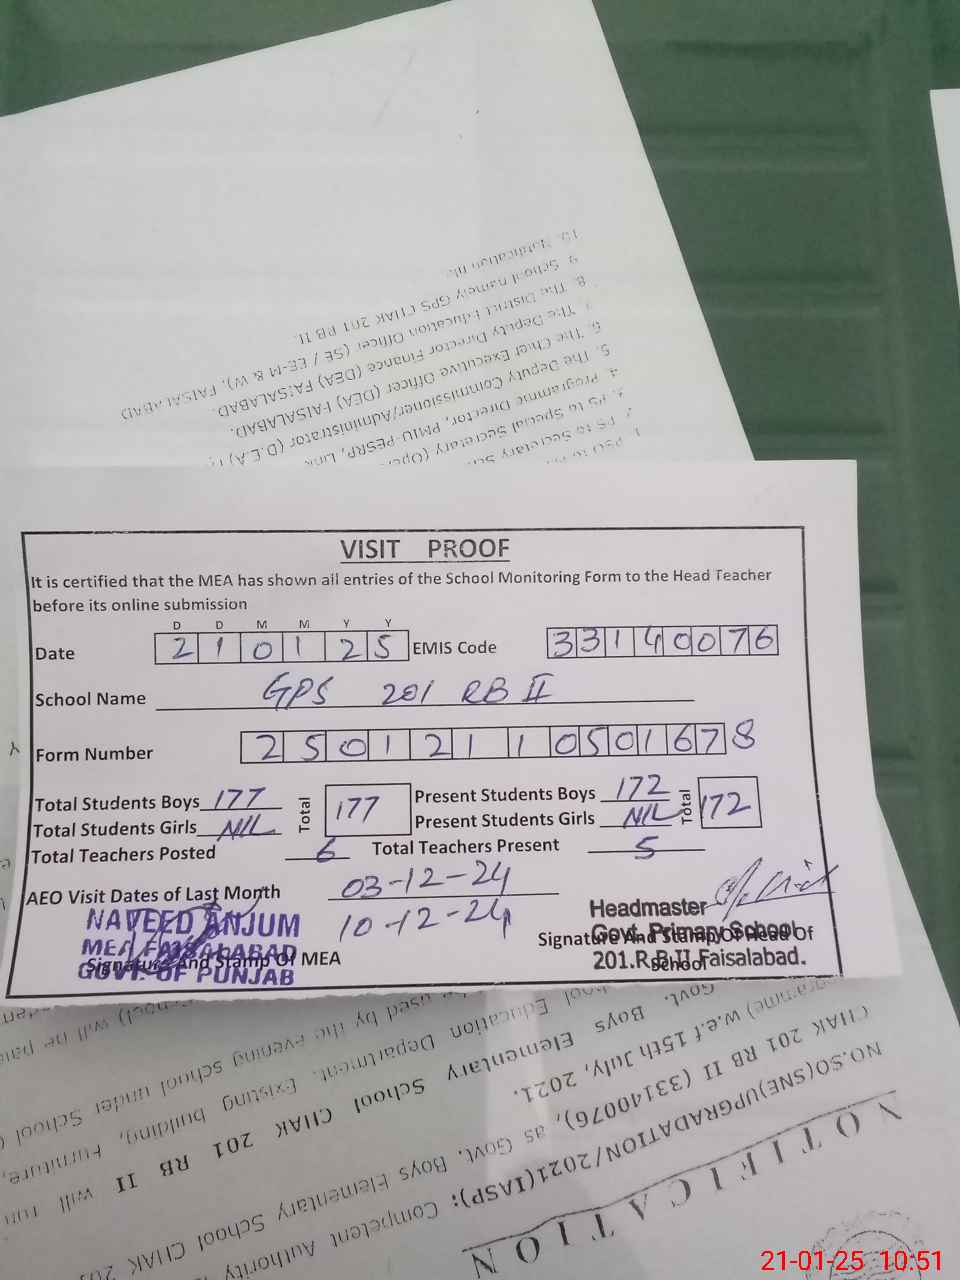 10. Notification file
9. School namely GPS CHAK 201 RB II.
8. The District Education Officer (SE / EE-M & W), FAISALABAD
7. The Deputy Director Finance (DEA) FAISALABAD.
6. The Chief Executive Officer (DEA) FAISALABAD.
5. The Deputy Commissioner/Administrator (D.E.A)
4. Programme Director, PMIU-PESRP, Link
PS to Special Secretary (Oper
PS to Secretary
VISIT PROOF
It is certified that the MEA has shown all entries of the School Monitoring Form to the Head Teacher
before its online submission
D D M M Y Y
Date 2 1 0 1 2 5 EMIS Code 3 3 1 4 0 0 7 6
School Name GPS 201 RB II
Form Number 2 5 0 1 2 1 1 0 5 0 1 6 7 8
Total Students Boys 177 Total 177 Present Students Boys 172 Total 172
Total Students Girls NIL Present Students Girls NIL
Total Teachers Posted 6 Total Teachers Present 5
AEO Visit Dates of Last Month 03-12-24
10-12-24
NAVEED ANJUM
MEA FAISALABAD
GOVT. OF PUNJAB
Signature And Stamp Of MEA
Headmaster
Govt. Primary School
201.R.B II Faisalabad.
Signature And Stamp Of Head Of
School
NOTIFICATION
NO.SO(SNE)UPGRADATION/2021(IASP): Competent Authority
CHAK 201 RB II (33140076), as Govt. Boys Elementary School CHAK
w.e.f 15th July, 2021.
Govt. Boys Elementary School CHAK 201 RB II will run
School Education Department. Existing building, Furniture,
used by the evening school under School
21-01-25 10:51